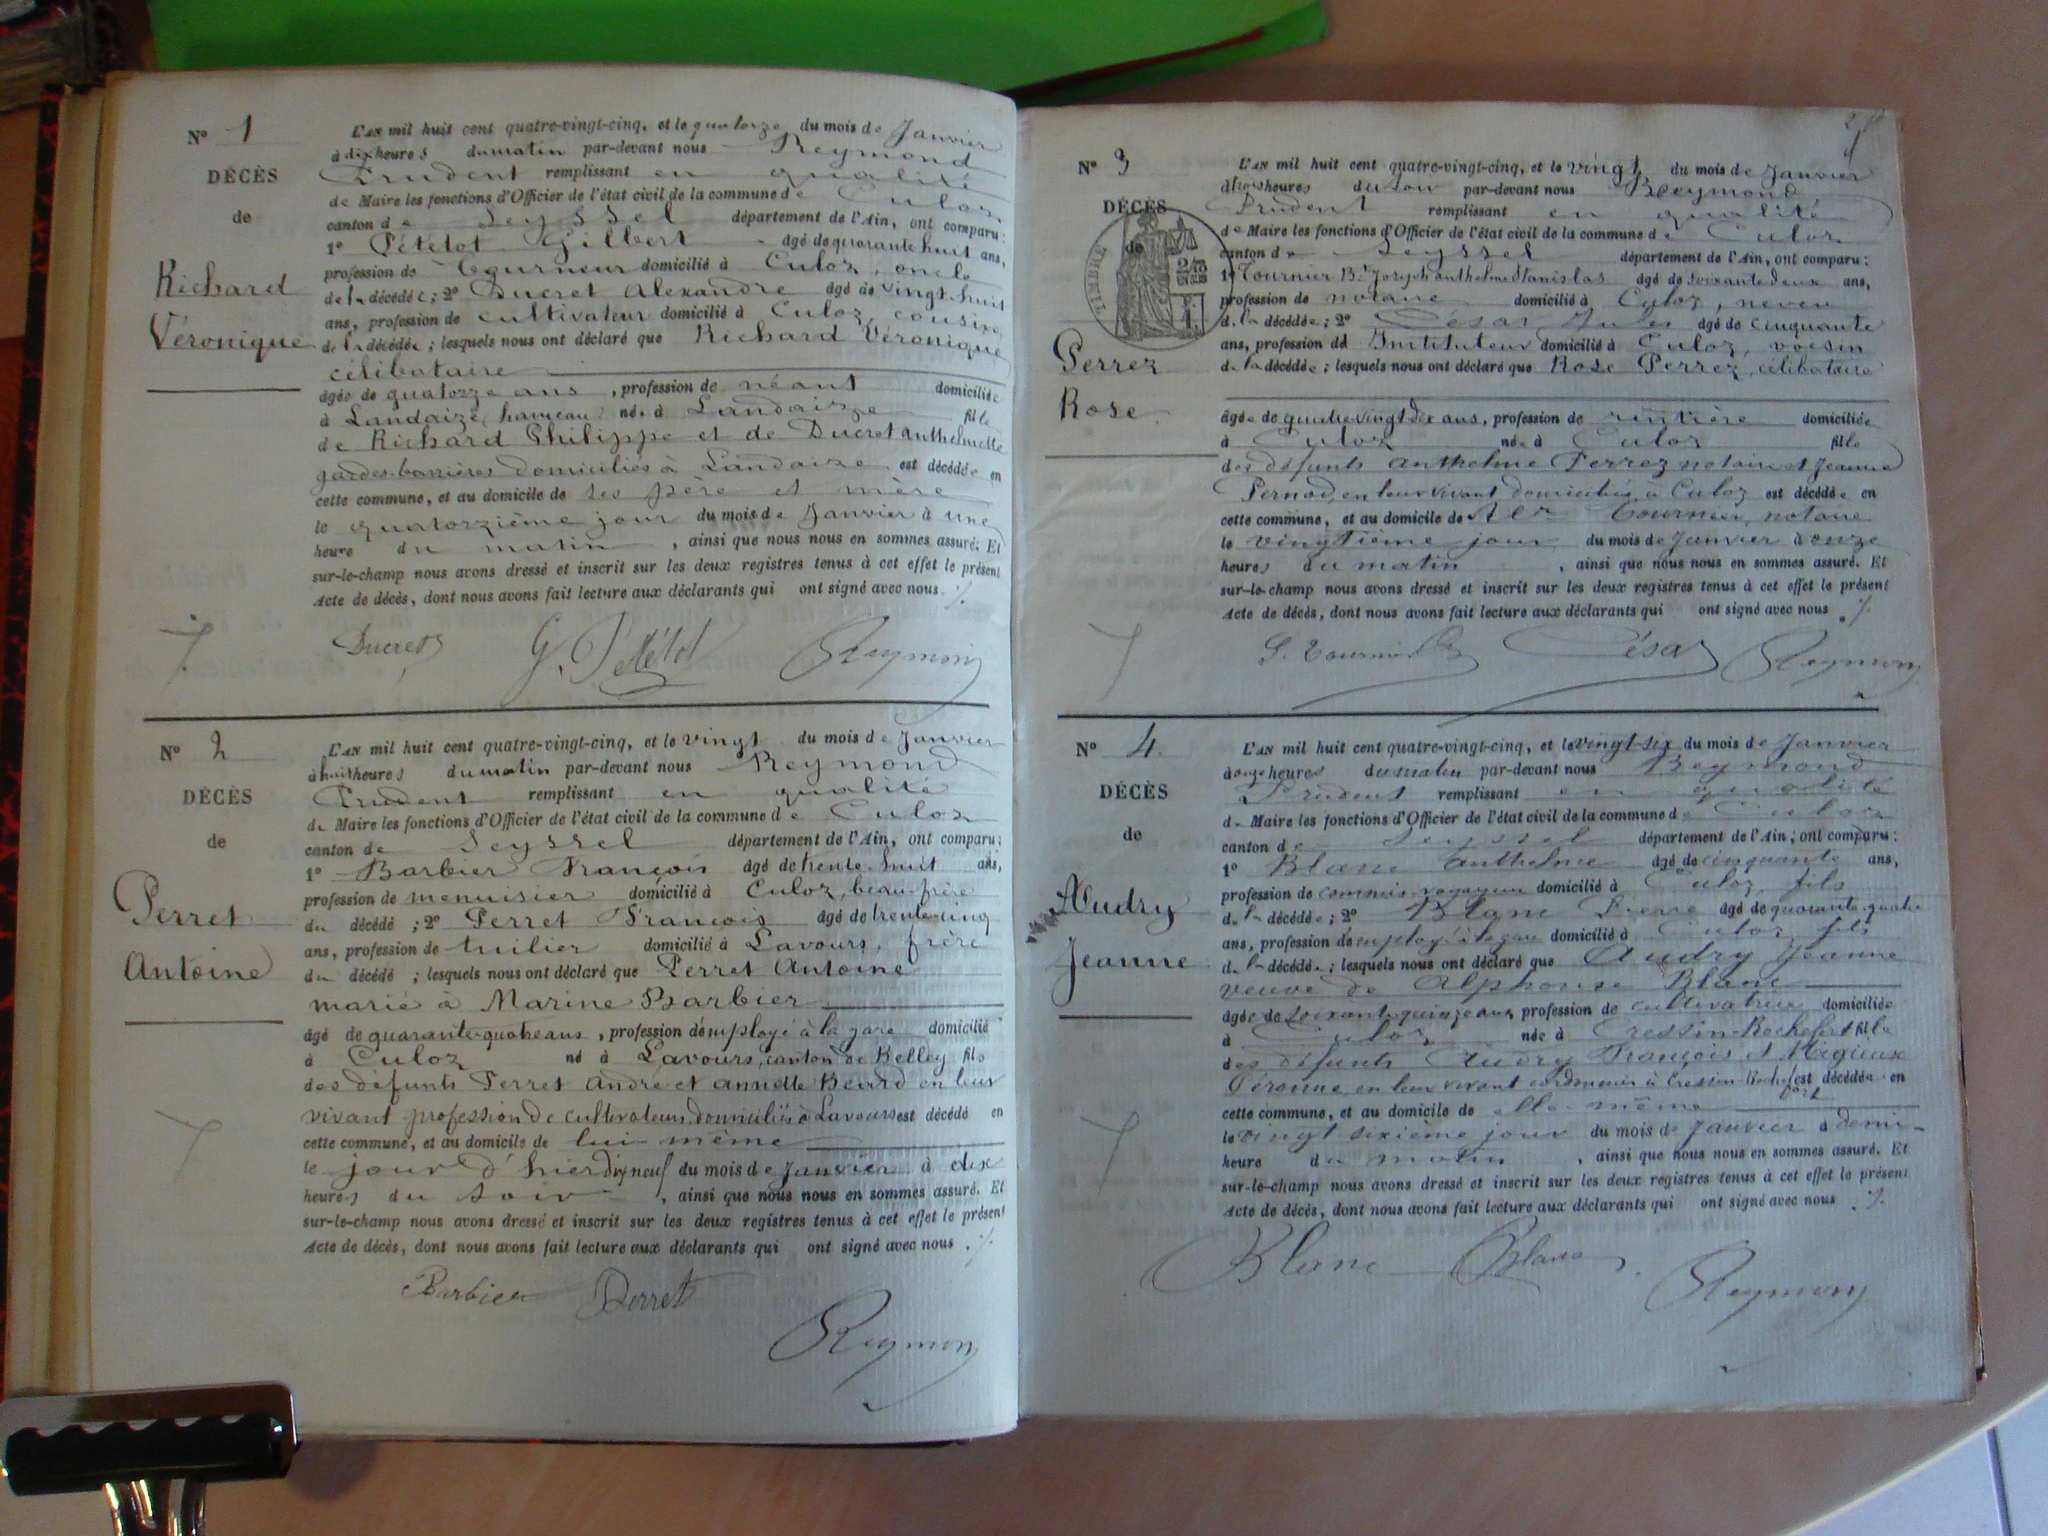 N° 1
DÉCÈS
de
Richard
Véronique
L'AN mil huit cent quatre-vingt-cinq, et le quatorze du mois de Janvier
à dix heures du matin par-devant nous Reymond
Prudent remplissant en qualité
de Maire les fonctions d'Officier de l'état civil de la commune de Culoz
canton de Seyssel département de l'Ain, ont comparu :
1° Pételot Gilbert âgé de quarante huit ans,
profession de Tourneur domicilié à Culoz, oncle
de la décédée ; 2° Ducret Alexandre âgé de vingt-huit
ans, profession de cultivateur domicilié à Culoz, cousin
de la décédée ; lesquels nous ont déclaré que Richard Véronique
célibataire
âgée de quatorze ans, profession de néant domiciliée
à Landaize, hameau née à Landaize fille
de Richard Philippe et de Ducret Anthelmette
gardes-barrières domiciliés à Landaize est décédée en
cette commune, et au domicile de ses père et mère
le quatorzième jour du mois de Janvier à une
heure du matin, ainsi que nous nous en sommes assuré. Et
sur-le-champ nous avons dressé et inscrit sur les deux registres tenus à cet effet le présent
Acte de décès, dont nous avons fait lecture aux déclarants qui ont signé avec nous ./.
Ducret G. Pételot Reymond
N° 2
DÉCÈS
de
Perret
Antoine
L'AN mil huit cent quatre-vingt-cinq, et le vingt du mois de Janvier
à huit heures du matin par-devant nous Reymond
Prudent remplissant en qualité
de Maire les fonctions d'Officier de l'état civil de la commune de Culoz
canton de Seyssel département de l'Ain, ont comparu :
1° Barbier François âgé de trente-huit ans,
profession de menuisier domicilié à Culoz, beau-frère
du décédé ; 2° Perret François âgé de trente-cinq
ans, profession de tuilier domicilié à Lavours, frère
du décédé ; lesquels nous ont déclaré que Perret Antoine
marié à Marine Barbier
âgé de quarante-quatre ans, profession d'employé à la gare domicilié
à Culoz né à Lavours, canton de Belley fils
des défunts Perret André et Annette Béard en leur
vivant profession de cultivateurs domiciliés à Lavours est décédé en
cette commune, et au domicile de lui-même
le jour d'hier dix neuf du mois de Janvier à dix
heures du soir, ainsi que nous nous en sommes assuré. Et
sur-le-champ nous avons dressé et inscrit sur les deux registres tenus à cet effet le présent
Acte de décès, dont nous avons fait lecture aux déclarants qui ont signé avec nous ./.
Barbier Perret
Reymond
N° 3
DÉCÈS
de
TIMBRE
Perrez
Rose
L'AN mil huit cent quatre-vingt-cinq, et le vingt du mois de Janvier
à trois heures du soir par-devant nous Reymond
Prudent remplissant en qualité
de Maire les fonctions d'Officier de l'état civil de la commune de Culoz
canton de Seyssel département de l'Ain, ont comparu :
1° Tournier Bte Joseph Anthelme Stanislas âgé de soixante deux ans,
profession de notaire domicilié à Culoz, neveu
de la décédée ; 2° César Jules âgé de cinquante
ans, profession de Instituteur domicilié à Culoz, voisin
de la décédée ; lesquels nous ont déclaré que Rose Perrez, célibataire
âgée de quatre vingt dix ans, profession de rentière domiciliée
à Culoz née à Culoz fille
des défunts Anthelme Perrez notaire et Jeanne
Pernod, en leur vivant domiciliés à Culoz est décédée en
cette commune, et au domicile de Tournier, notaire
le vingtième jour du mois de Janvier à onze
heures du matin, ainsi que nous nous en sommes assuré. Et
sur-le-champ nous avons dressé et inscrit sur les deux registres tenus à cet effet le présent
Acte de décès, dont nous avons fait lecture aux déclarants qui ont signé avec nous ./.
S. Tournier César Reymond
N° 4
DÉCÈS
de
Audry
Jeanne
L'AN mil huit cent quatre-vingt-cinq, et le vingt-six du mois de Janvier
à onze heures du matin par-devant nous Reymond
Prudent remplissant en qualité
de Maire les fonctions d'Officier de l'état civil de la commune de Culoz
canton de Seyssel département de l'Ain, ont comparu :
1° Blanc Anthelme âgé de cinquante ans,
profession de commis-voyageur domicilié à Culoz, fils
de la décédée ; 2° Blanc Pierre âgé de quarante-quatre
ans, profession d'employé à la gare domicilié à Culoz, fils
de la décédée ; lesquels nous ont déclaré que Audry Jeanne
veuve de Alphonse Blanc
âgée de soixante-quinze ans, profession de cultivatrice domiciliée
à Culoz née à Cressin-Rochefort fille
des défunts Audry François et Mégieux
Péronne en leur vivant cordonnier à Cressin-Rochefort est décédée en
cette commune, et au domicile de elle-même
le vingt sixième jour du mois de Janvier à demi-
heure du matin, ainsi que nous nous en sommes assuré. Et
sur-le-champ nous avons dressé et inscrit sur les deux registres tenus à cet effet le présent
Acte de décès, dont nous avons fait lecture aux déclarants qui ont signé avec nous ./.
Blanc Blanc
Reymond